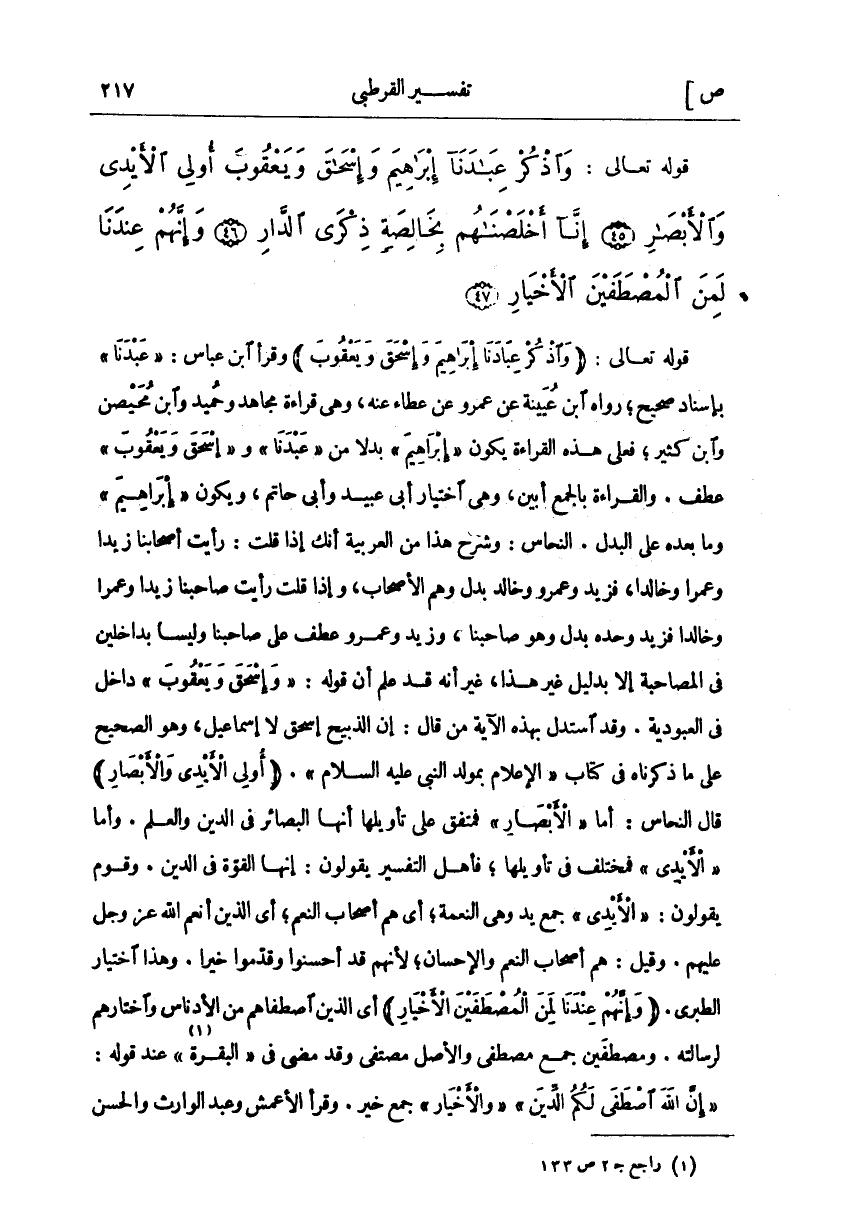 ص ] تفسير القرطبى ٢١٧
قوله تعالى : وَٱذْكُرْ عِبَـٰدَنَآ إِبْرَٰهِيمَ وَإِسْحَـٰقَ وَيَعْقُوبَ أُولِى ٱلْأَيْدِى
وَٱلْأَبْصَـٰرِ ﴿٤٥﴾ إِنَّـآ أَخْلَصْنَـٰهُم بِخَالِصَةٍ ذِكْرَى ٱلدَّارِ ﴿٤٦﴾ وَإِنَّهُمْ عِندَنَا
لَمِنَ ٱلْمُصْطَفَيْنَ ٱلْأَخْيَارِ ﴿٤٧﴾
قوله تعالى : ( وَٱذْكُرْ عِبَادَنَا إِبْرَاهِيمَ وَإِسْحَقَ وَيَعْقُوبَ ) وقرأ ٱبن عباس : « عَبْدَنَا »
بإسناد صحيح؛ رواه ٱبن عُيَينة عن عمرو عن عطاء عنه، وهى قراءة مجاهد وحُميد وٱبن مُحَيْصن
وٱبن كثير ؛ فعلى هذه القراءة يكون « إِبْرَاهِيمَ » بدلا من « عَبْدَنَا » و « إِسْحَقَ وَيَعْقُوبَ »
عطف . والقراءة بالجمع أبين، وهى ٱختيار أبى عبيد وأبى حاتم ، ويكون « إِبْرَاهِيمَ »
وما بعده على البدل . النحاس : وشرح هذا من العربية أنك إذا قلت : رأيت أصحابنا زيدا
وعمرا وخالدا، فزيد وعمرو وخالد بدل وهم الأصحاب، وإذا قلت رأيت صاحبنا زيدا وعمرا
وخالدا فزيد وحده بدل وهو صاحبنا ، وزيد وعمرو عطف على صاحبنا وليسا بداخلين
فى المصاحبة إلا بدليل غير هذا، غير أنه قد علم أن قوله : « وَإِسْحَقَ وَيَعْقُوبَ » داخل
فى العبودية . وقد ٱستدل بهذه الآية من قال : إن الذبيح إسحق لا إسماعيل، وهو الصحيح
على ما ذكرناه فى كتاب « الإعلام بمولد النبى عليه السلام » . ( أُولِى الْأَيْدِى وَالْأَبْصَارِ )
قال النحاس : أما « الْأَبْصَارِ » فمتفق على تأويلها أنها البصائر فى الدين والعلم . وأما
« الْأَيْدِى » فمختلف فى تأويلها ؛ فأهل التفسير يقولون : إنها القوّة فى الدين . وقوم
يقولون : « الْأَيْدِى » جمع يد وهى النعمة؛ أى هم أصحاب النعم؛ أى الذين أنعم الله عز وجل
عليهم . وقيل : هم أصحاب النعم والإحسان؛ لأنهم قد أحسنوا وقدّموا خيرا . وهذا ٱختيار
الطبرى. ( وَإِنَّهُمْ عِنْدَنَا لَمِنَ الْمُصْطَفَيْنَ الْأَخْيَارِ ) أى الذين ٱصطفاهم من الأدناس وٱختارهم
لرسالته . ومصطفَين جمع مصطفى والأصل مصتفى وقد مضى فى « البقرة »(١) عند قوله :
« إِنَّ اللهَ ٱصْطَفَى لَكُمُ الدِّينَ » « والْأَخْيَار » جمع خير . وقرأ الأعمش وعبد الوارث والحسن
(١) راجع جـ ٢ ص ١٣٣